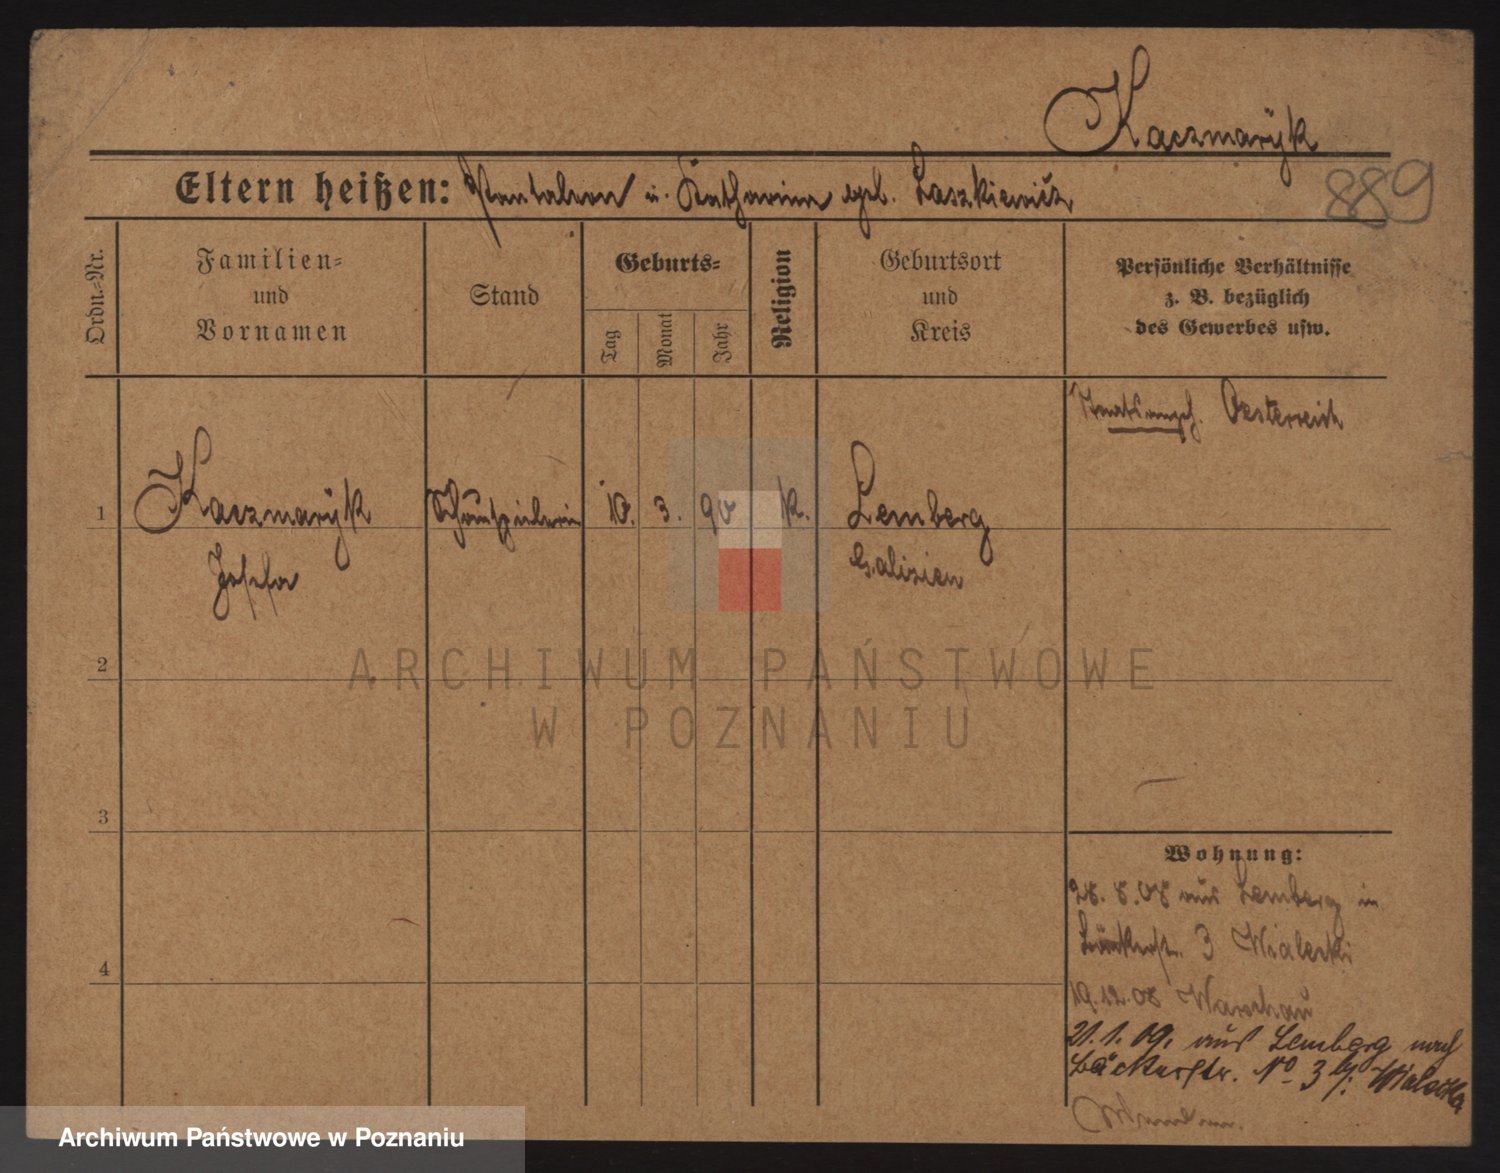 Kaczmarÿk
Eltern heißen: Pantaleon u. Katharina geb. Laszkiewicz
889
Ordn.-Nr.
Familien-
und
Vornamen
Stand
Geburts-
Tag
Monat
Jahr
Religion
Geburtsort
und
Kreis
Persönliche Verhältnisse
z. B. bezüglich
des Gewerbes usw.
Staatsangeh. Oesterreich
1 Kaczmarÿk Schauspielerin 10. 3. 90 k. Lemberg
Josefa Galizien
2
3
4
Wohnung:
28. 8. 08 aus Lemberg in
Bäckerstr. 3
19. 12. 08 Warschau
21. 1. 09. aus Lemberg nach
Bäckerstr. No 3
ARCHIWUM PAŃSTWOWE
W POZNANIU
Archiwum Państwowe w Poznaniu